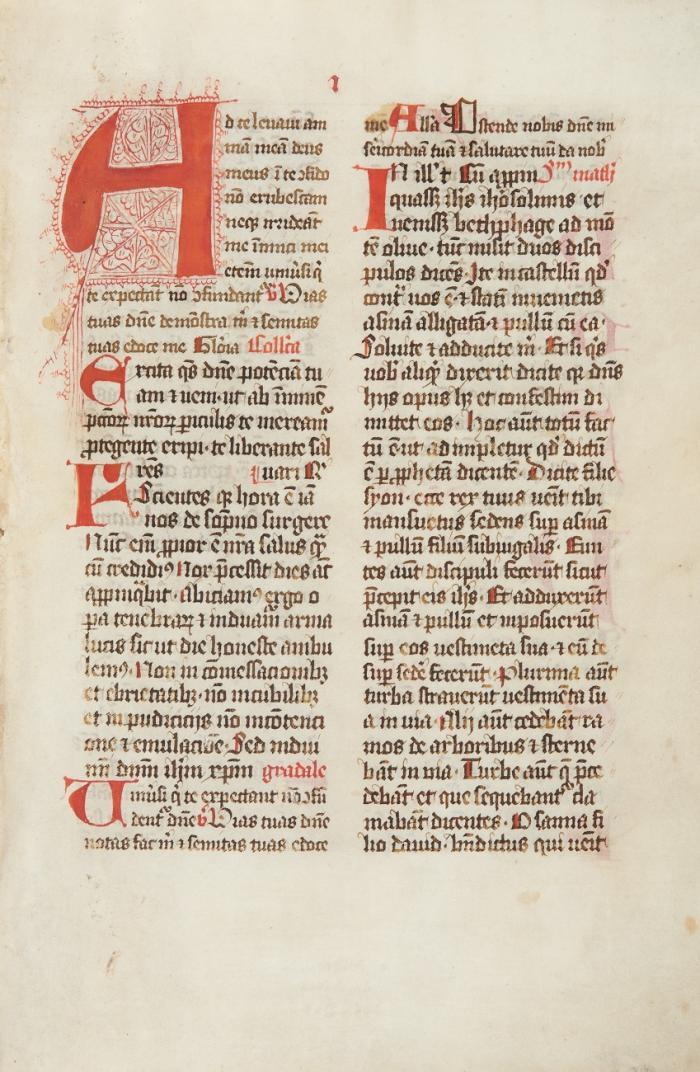 1
Ad te leuaui am
mā meā deus
meus ī te ɔfido
nō erubescam
neqꝫ irrideāt
me īimici mei
etem̄ vniu͛si q̇
te expectāt nō ɔfundant͛ ℣ Vias
tuas dn̄e demōstra m̄ ⁊ semitas
tuas edoce me Glōia Collc̄ta
Excita q̄s dn̄e potēciā tu
am ⁊ veni· ut ab īminē
pc̄toꝝ nr̄oꝝ ꝑiculis te meream͛
ꝓtegente eripi· te liberante sal
Fres
Scientes qꝫ hora ē iā
nos de sōpno surgere
Nūc em̄ ꝓpior ē nr̄a salus q̄ꝫ
cū credidiꝰ Nox p̄cessit dies at̄
appinq̄bit· Abiciamꝰ ergo o
ꝑa tenebraꝝ ⁊ induam͛ arma
lucis sic ut die honeste ambu
lemꝰ· Non in cōmessacionibꝫ
et ebrietatibꝫ· nō in cubilibꝫ
et in pudicicijs nō in cōtenci
one ⁊ emulacōe· Sed indui
mī dn̄m ih̄m xp̄m gradale
Vniu͛si q̇ te expectant nō ɔfū
dent͛ dn̄e ℣ Vias tuas dn̄e
notas fac m̄ ⁊ semitas tuas edoce
me Alla Ostende nobis dn̄e mi
sericordiā tuā ⁊ salutare tuū da nob̄
In ill̄ t̄ Cū appīn
quassꝫ ih̄s ih͛osolimis et
venissꝫ bethphage ad mō
tē oliue· tūc misit duos disci
pulos dicēs· Ite in castellū qd̄
cont͛ uos ē· ⁊ statī inuenietis
asinā alligatā· ⁊ pullū cū ea·
Soluite ⁊ adducite m̄· Et si q̄s
uob̄ aliqͥd dixerit dicite qꝫ dn̄s
hijs opus hꝫ et confestim di
mittet eos· Hoc aūt totū fac
tū ē· ut adimpletur qd̄ dictū
ē ꝑ ꝓph̄etā dicentē· Dicite filie
syon· ecce rex tuus ueīt tibi
mansuetus sedens suꝑ asinā
⁊ pullū filiū subiugalis· Eun
tes aūt discipuli fecerūt sicut
p̄cepit eis ih̄s· Et adduxerūt
asinā ⁊ pullū et inposuerūt
suꝑ eos uestimēta sua· ⁊ eū de
suꝑ sedē fecerūt· Plurima aūt
turba strauerūt uestimēta su
a in via· Alij aūt cedebāt ra
mos de arboribus ⁊ sterne
bāt in via· Turbe aūt q̄ p̄ce
debāt et que sequebant͛ cla
mabāt dicentes· Osanna fi
lio dauid· bn̄dictus qui ueīt